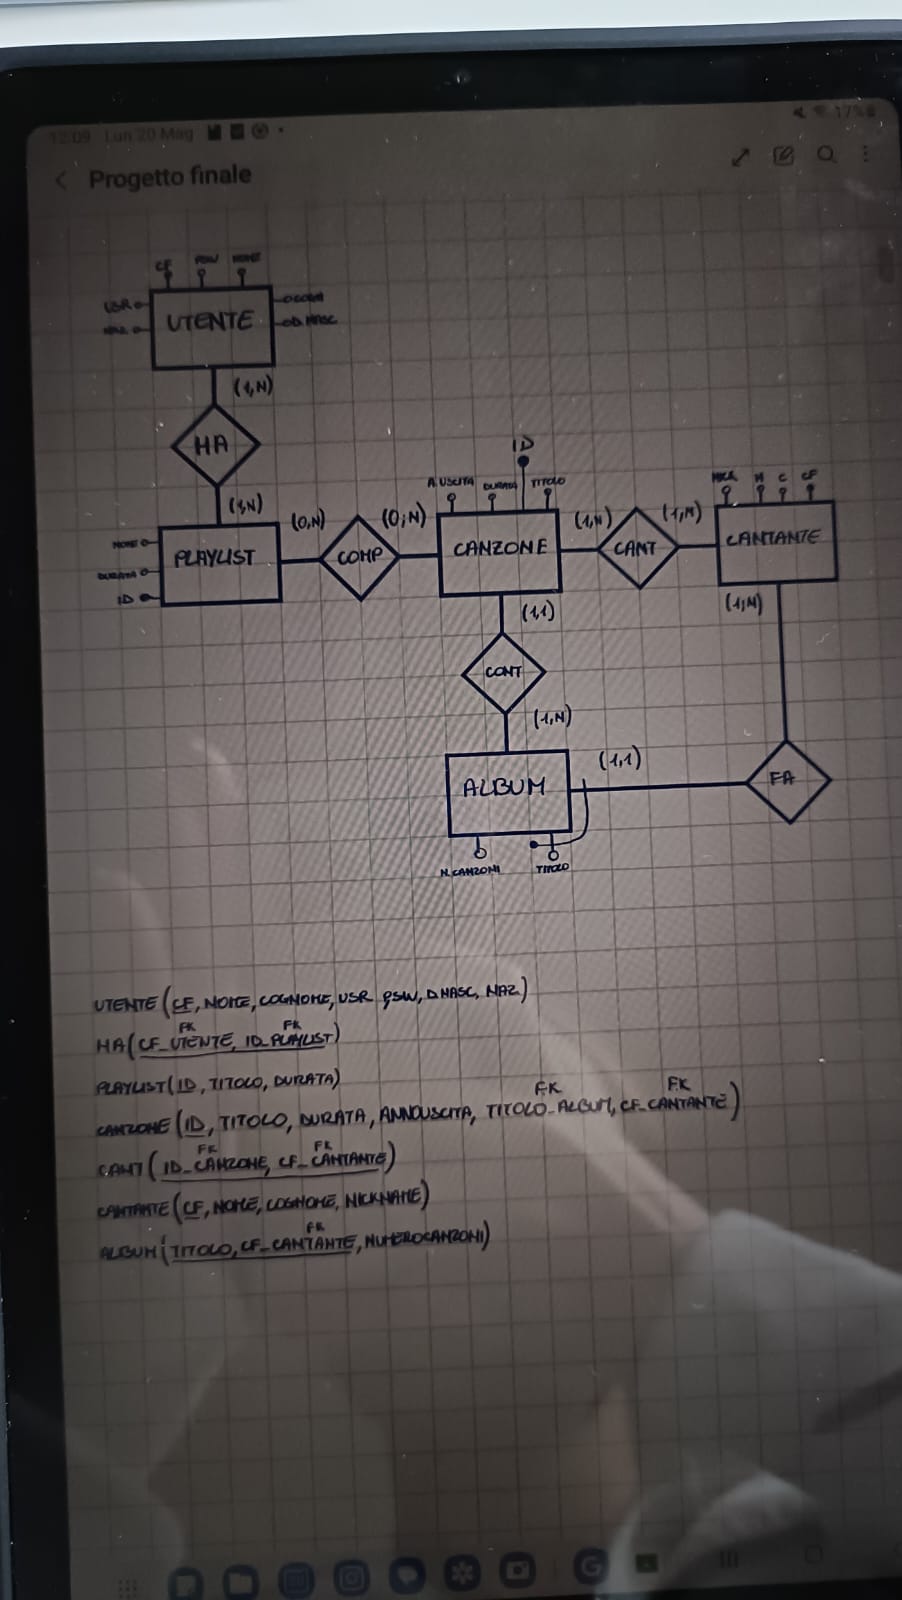 12:09 Lun 20 Mag
17%
Progetto finale
CF PSW NOME
USR
UTENTE
D.NASC
(1,N)
HA
(1,N)
NOME
DURATA
ID
PLAYLIST
(0,N)
COMP
(0,N)
ID
A.USCITA DURATA TITOLO
CANZONE
(1,N)
CANT
(1,N)
NICK N C CF
CANTANTE
(1,N)
(1,1)
CONT
(1,N)
ALBUM
(1,1)
FA
N.CANZONI TITOLO
UTENTE (CF, NOME, COGNOME, USR PSW, D.NASC, NAZ)
FK FK
HA (CF_UTENTE, ID_PLAYLIST)
PLAYLIST (ID, TITOLO, DURATA)
F.K F.K
CANZONE (ID, TITOLO, DURATA, ANNOUSCITA, TITOLO_ALBUM, CF_CANTANTE)
FK FK
CANT (ID_CANZONE, CF_CANTANTE)
CANTANTE (CF, NOME, COGNOME, NICKNAME)
FK
ALBUM (TITOLO, CF_CANTANTE, NUMEROCANZONI)